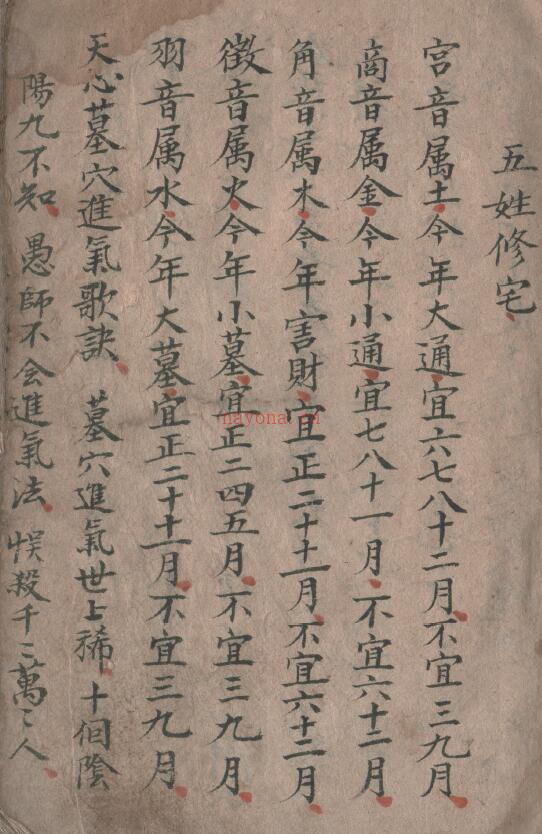 五姓修宅
宫音属土今年大通宜六七八十二月不宜三九月
商音属金今年小通宜七八十一月不宜六十二月
角音属木今年害財宜正二十十一月不宜六十二月
徵音属火今年小墓宜正二四五月不宜三九月
羽音属水今年大墓宜正二十十一月不宜三九月
天心墓穴進氣歌訣 墓穴進氣世上稀十個陰
陽九不知 愚師不会進氣法 悮殺千〻萬〻人
nayona.cn